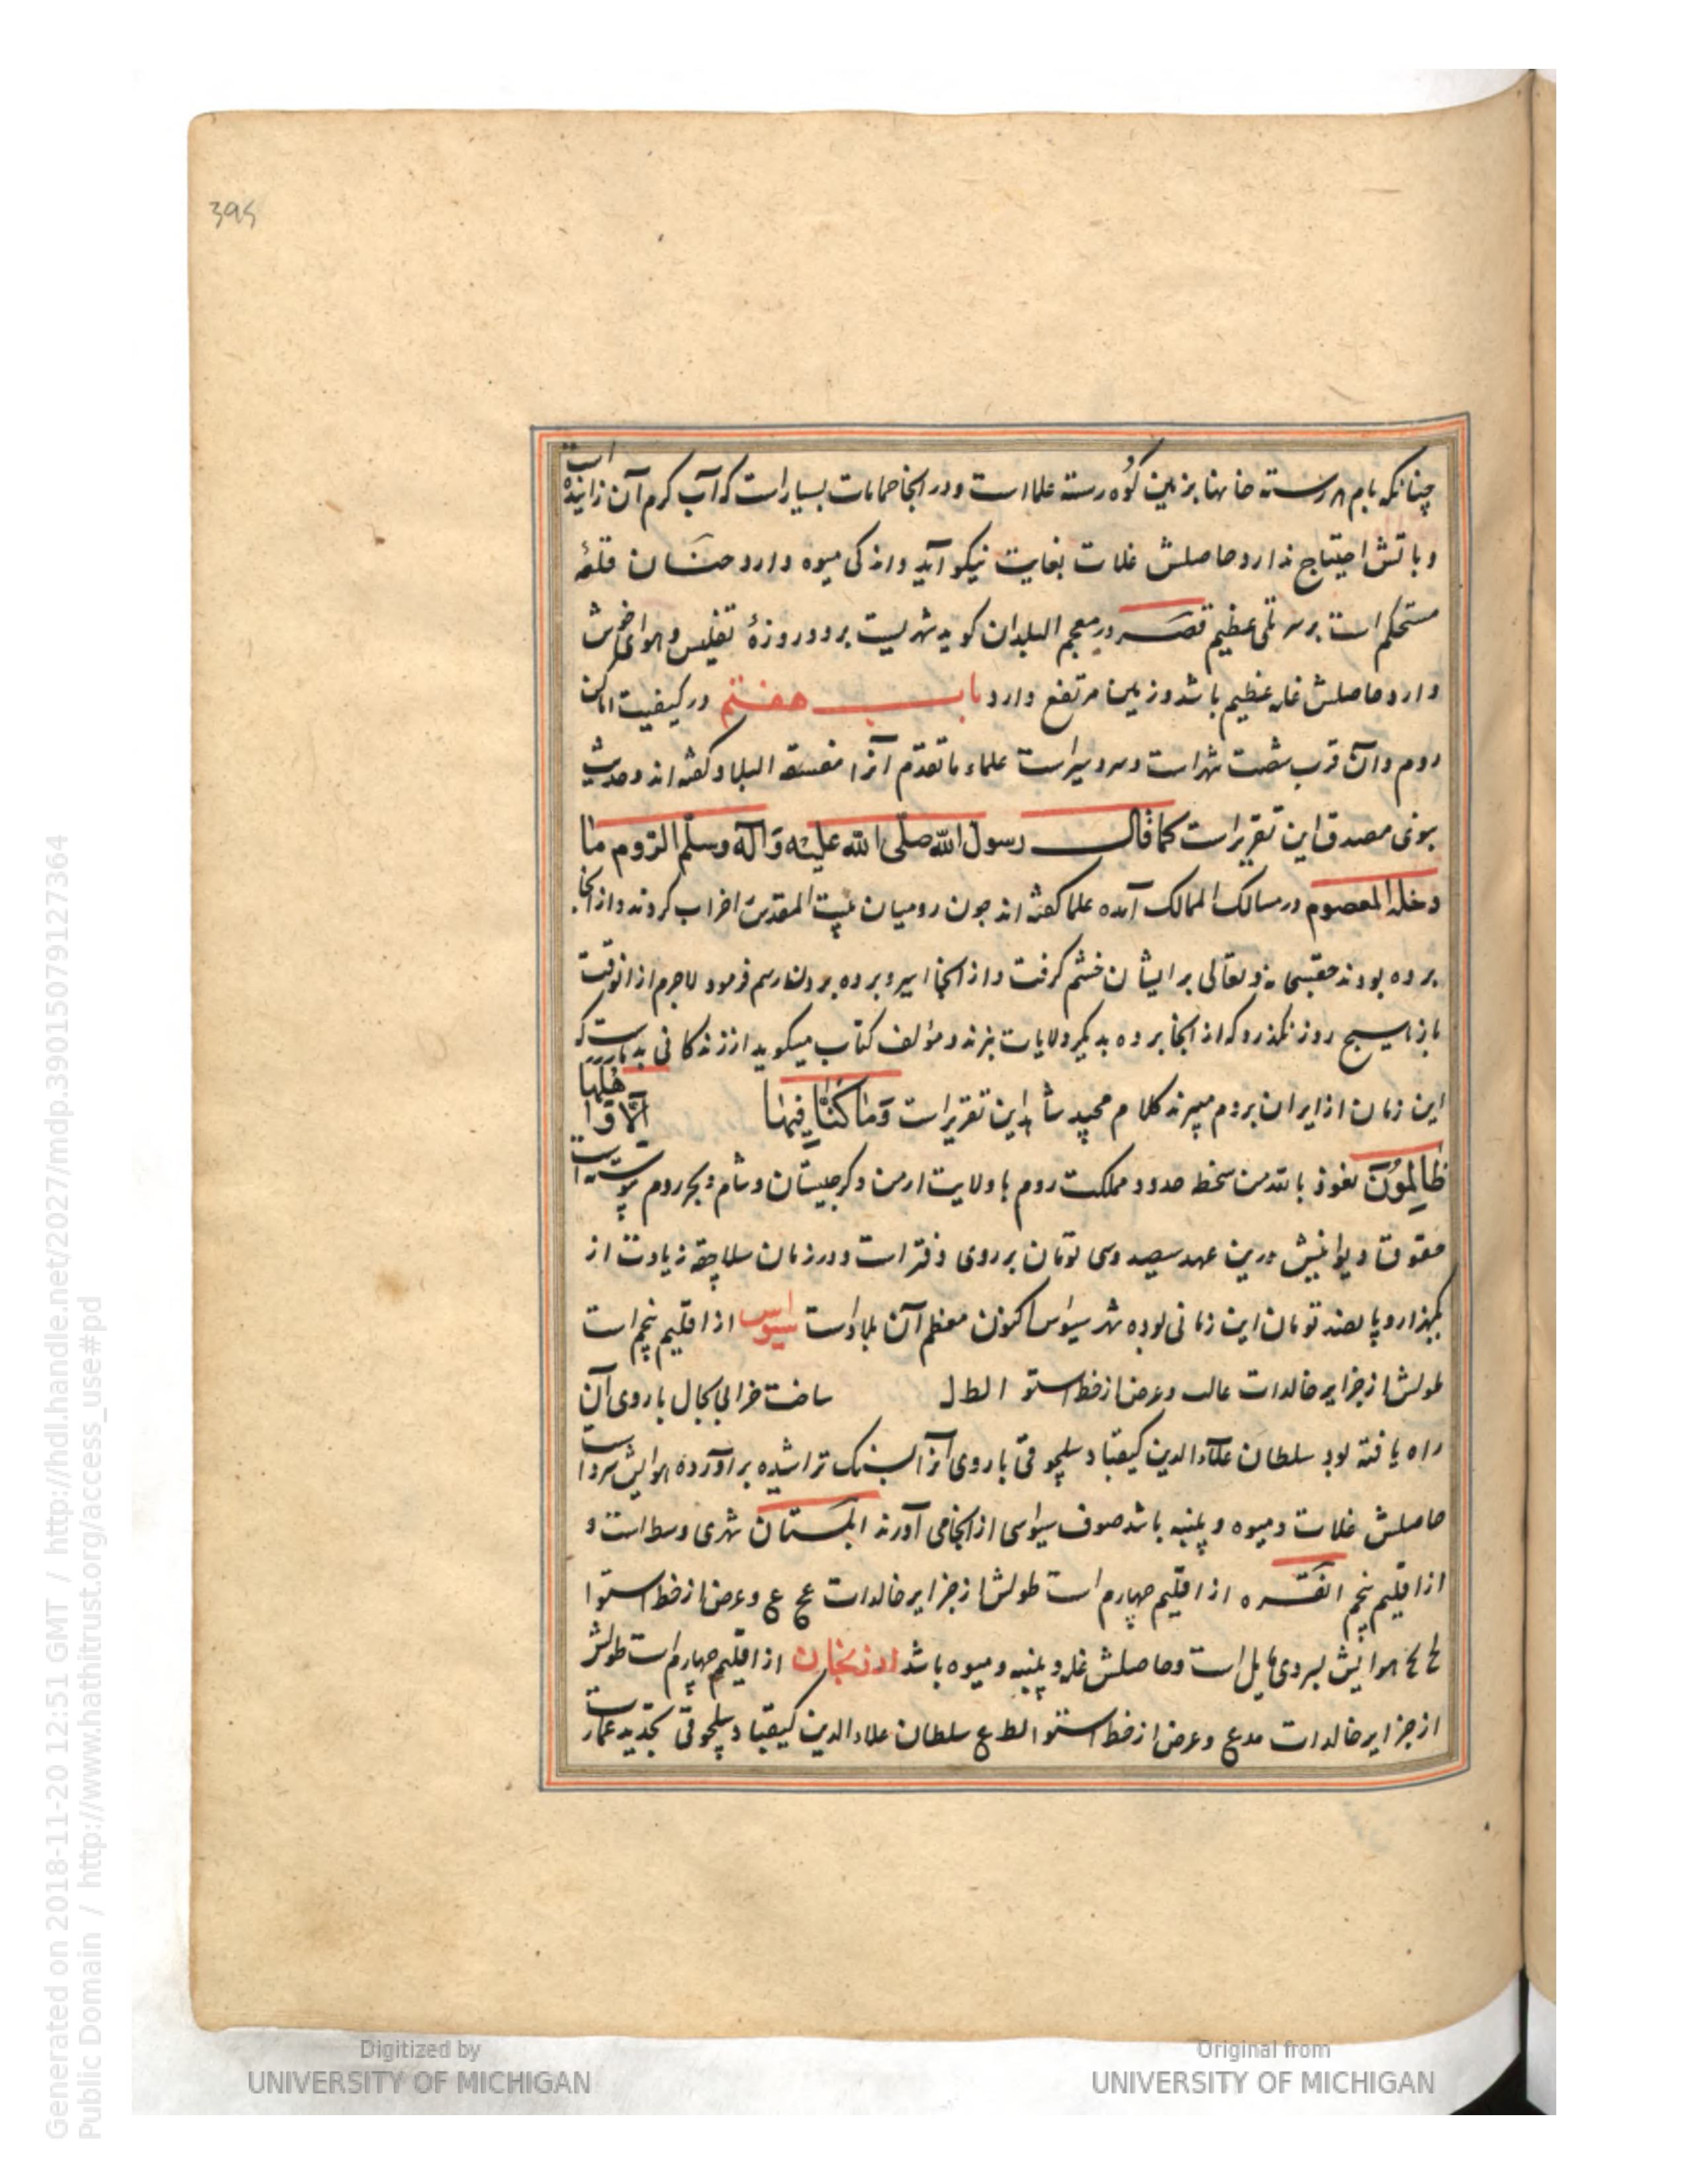 395
چنانکه بام هر رسته خانها بزمین کوه رسته علیا است ودر انجا حمامات بسیار است که آب کرم آن زاینده است
وباتش احتیاج ندارد حاصلش غلات بغایت نیکو آید واندکی میوه دارد حسنان قلعهٔ
مستحکم است برسر تلی عظیم قصر در معجم البلدان کوید شهریست بر دو روزهٔ تفلیس وهوای خوش
دارد حاصلش غله عظیم باشد وزمین مرتفع دارد باب هفتم در کیفیت اماکن
روم وآن قرب شصت شهر است وسردسیر است علماء ماتقدم آنرا مفسقة البلاد کفته اند وحدیث
نبوی مصدق این تقریر است کما قال رسول الله صلی الله علیه وآله وسلم الروم ما
دخله المعصوم در مسالک الممالک آمده علما کفته اند چون رومیان بیت المقدس خراب کردند واز انجا
برده بودند حقسبحانه وتعالی بر ایشان خشم کرفت واز انجا اسیر وبرده بردن رسم فرمود لاجرم از انوقت
باز هیچ روز نگذرد که از انجا برده بدیکر ولایات نبرند ومؤلف کتاب میکوید از زندکانی بد است که
این زمان از ایران بروم میبرند کلام مجید شاهد این تقریر است وما کنا فیها الا واهلها
ظالمون نعوذ بالله من سخط حدود مملکت روم با ولایت ارمن وکرجستان وشام وبحر روم پیوسته است
حقوق دیوانیش درین عهد سیصد وسی تومان بر روی دفتر است ودر زمان سلاجقه زیادت از
یکهزار وپانصد تومان این زمانی بوده شهر سیواس اکنون معظم آن بلاد است سیواس از اقلیم پنجم است
طولش از جزایر خالدات عالب وعرض از خط استوا لط ل ساخت خرابی بحال باروی آن
راه یافته بود سلطان علاء الدین کیقباد سلجوقی باروی آنرا بسنک تراشیده برآورده هوایش سرد است
حاصلش غلات ومیوه وپنبه باشد صوف سیواسی از انجا می آورند ابلستان شهری وسط است و
از اقلیم پنجم انقره از اقلیم چهارم است طولش از جزایر خالدات عج ع وعرض از خط استوا
لح لح هوایش بسردی مایل است وحاصلش غله وپنبه ومیوه باشد ارزنجان از اقلیم چهارم است طولش
از جزایر خالدات مدع وعرض از خط استوا لط ع سلطان علاء الدین کیقباد سلجوقی تجدید عمارت
Digitized by
UNIVERSITY OF MICHIGAN
Original from
UNIVERSITY OF MICHIGAN
Generated on 2018-11-20 12:51 GMT / http://hdl.handle.net/2027/mdp.39015079127364
Public Domain / http://www.hathitrust.org/access_use#pd